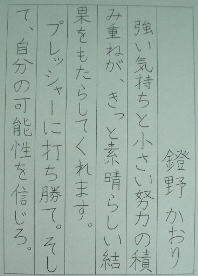 鐙野 かおり
強い気持ちと小さい努力の積
み重ねが、きっと素晴らしい結
果をもたらしてくれます。
プレッシャーに打ち勝て。そし
て、自分の可能性を信じろ。